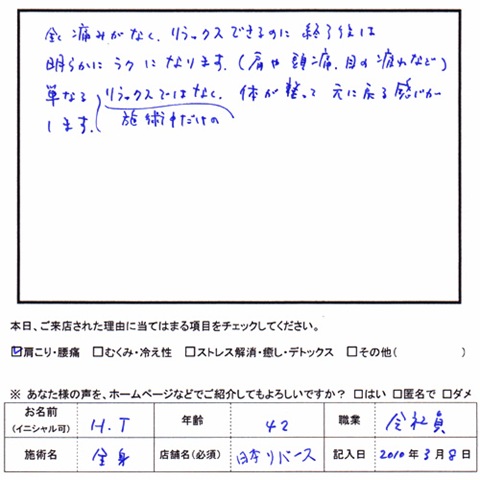 全く痛みがなく、リラックスできるのに終了後は
明らかにラクになります。(肩や頭痛、目の疲れなど)
単なるリラックスではなく、体が整って元に戻る感じが
します。施術中だけの
本日、ご来店された理由に当てはまる項目をチェックしてください。
☑肩こり・腰痛 □むくみ・冷え性 □ストレス解消・癒し・デトックス □その他( )
※ あなた様の声を、ホームページなどでご紹介してもよろしいですか? □はい □匿名で □ダメ
お名前 (イニシャル可) H.T 年齢 42 職業 会社員
施術名 全身 店舗名(必須) 日本リバース 記入日 2010年3月8日